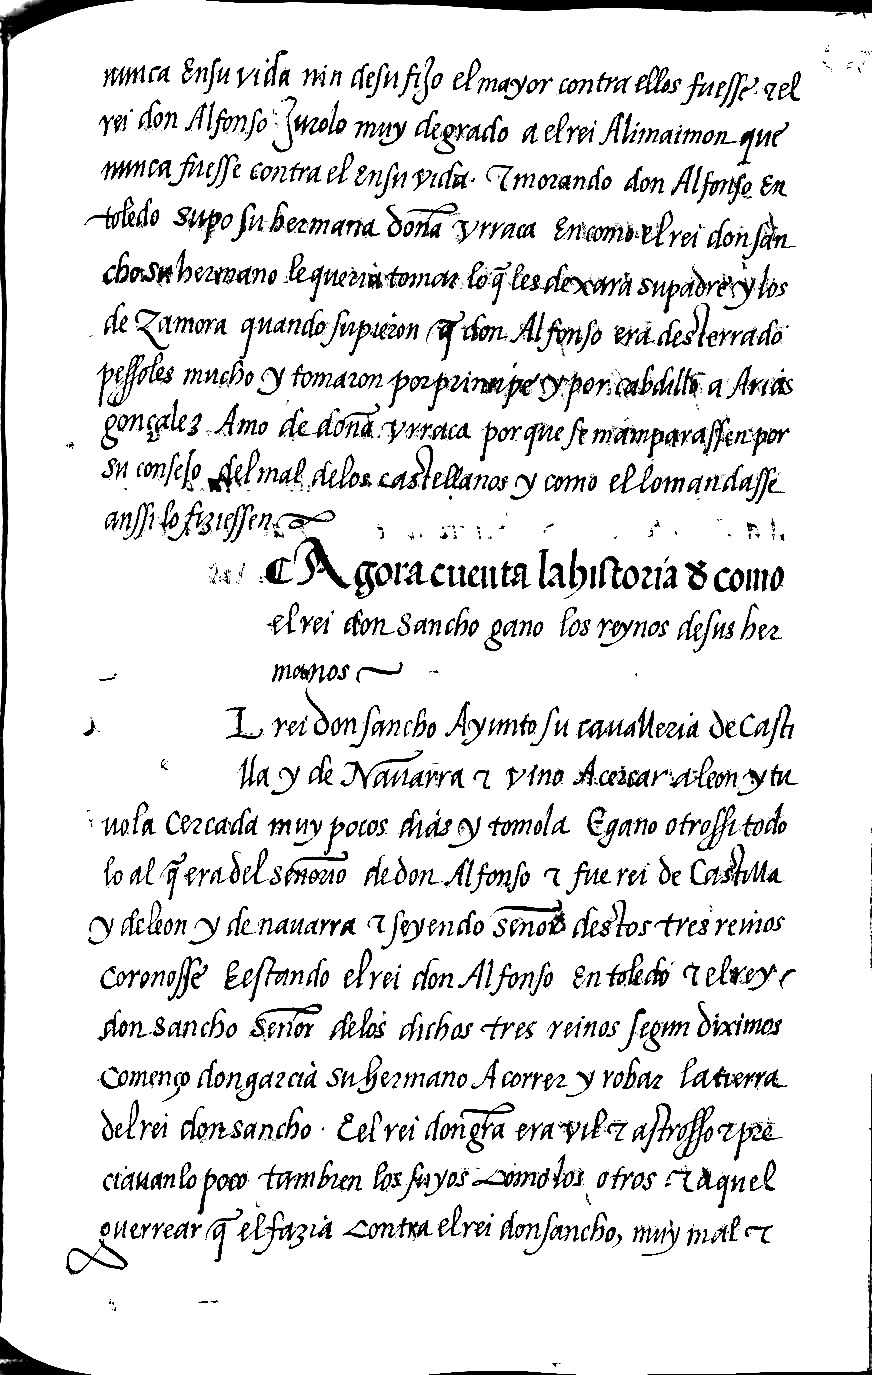 nunca Ensu vida nin desu fijo el mayor contra ellos fuesse. ⁊ el
rei don Alfonso Jurolo muy degrado a el rei Alimaimon que
nunca fuesse contra el Ensu vida. ⁊ morando don Alfonso En
toledo supo su hermana doña vrraca En como el rei don san
cho su hermano le queria tomar lo q̃ les dexara su padre y los
de Zamora quando supieron q̃ don Alfonso era desterrado
pessoles mucho y tomaron por principe y por cabdillo a Arias
gonçalez Amo de doña vrraca por que se mamparassen por
su consejo del mal delos castellanos y como el lo mandasse
anssi lo fiziessen
¶ Agora cuenta la historia de como
el rei don sancho gano los reynos desus her
manos
L rei don sancho Ayunto su caualleria de Casti
lla y de Nauarra ⁊ vino Acercar a leon y tu
uola cercada muy pocos dias y tomola Egano otrossi todo
lo al q̃ era del señorio de don Alfonso ⁊ fue rei de Castilla
y deleon y de nauarra ⁊ seyendo señor destos tres reinos
coronosse E estando el rei don Alfonso En toledo ⁊ el rey
don sancho señor delos dichos tres reinos segun diximos
començo don garcia su hermano A correr y robar la tierra
del rei don sancho. E el rei don gr̃a era vil ⁊ astrosso ⁊ pre
ciauan lo poco tambien los suyos como los otros ⁊ aquel
guerrear q̃ el fazia contra el rei don sancho, muy mal ⁊